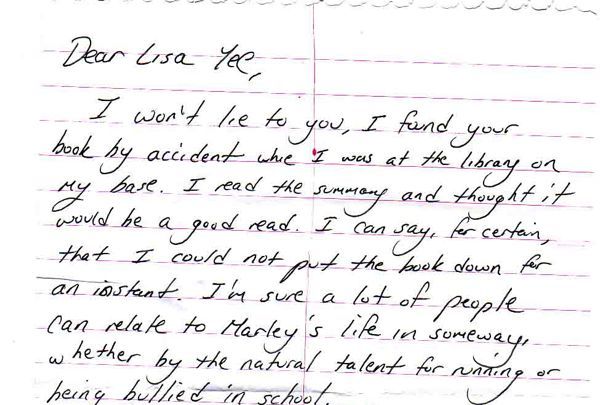 Dear Lisa Yee,
I won't lie to you, I fand your
book by accident whie I was at the library on
my base. I read the summary and thought it
would be a good read. I can say, for certain,
that I could not put the book down for
an instant. I'm sure a lot of people
can relate to Marley's life in someway,
whether by the natural talent for running or
being bullied in school.